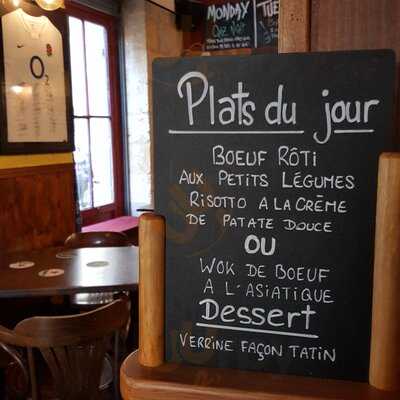 MONDAY
TUE
O2
Plats du jour
BOEUF RÔTI
AUX PETITS LÉGUMES
RISOTTO A LA CRÈME
DE PATATE DOUCE
OU
WOK DE BOEUF
A L'ASIATIQUE
Dessert
VERRINE FAÇON TATIN